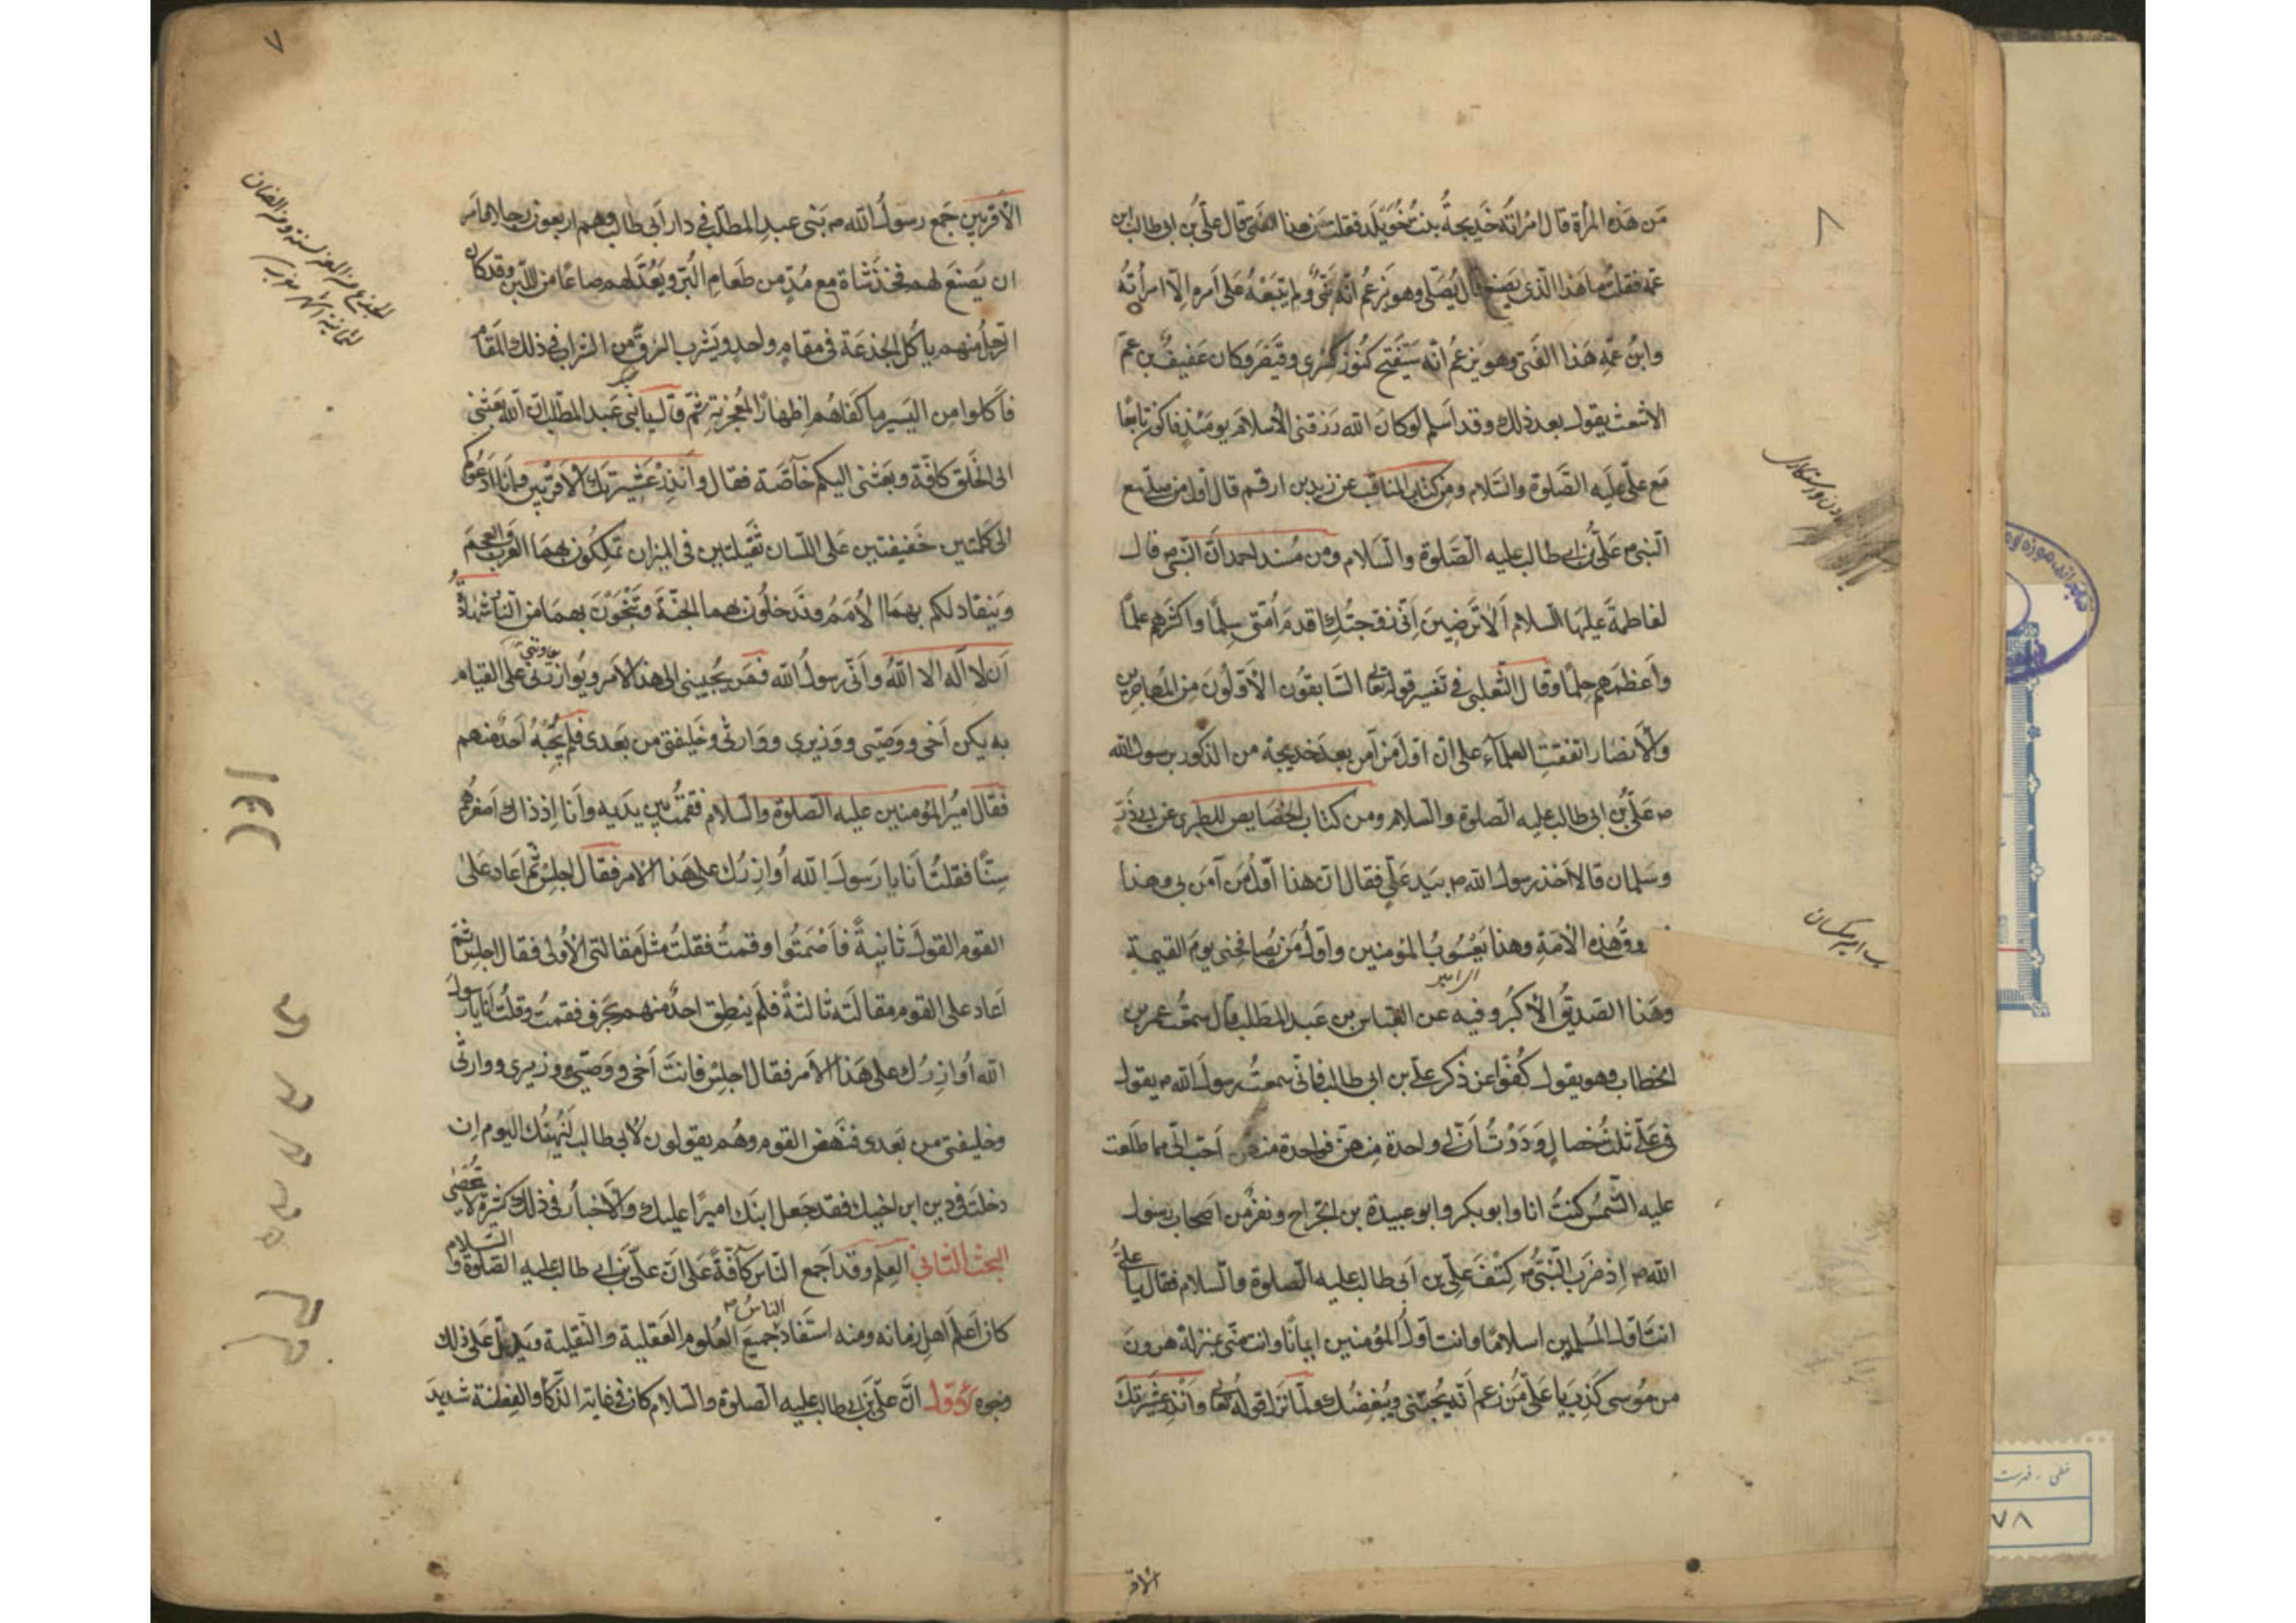 ٨
مَن هَذه المرأة قال امرَاتُه خَديجةُ بنتُ خُوَيلَد فقلت مَن هذا الفتى قال علىّ بن ابى طالب ابن
عمّه فقلت ما هَذا الّذى يَصنَع قال يُصَلّى وهو يَزعُم انّه نَبىٌّ ولم يتبَعْهُ عَلى اَمره اِلّا امرأتُه
وابنُ عمّه هَذا الفَتى وهو يزعمُ انّه سَيَفتَح كنُوزَ كِسْرى وقَيْصَر وكان عَفيفُ بن عَمّ
الاشعث يقول بعد ذلك وقد اَسلم لو كانَ الله رَزقنى الاسلامَ يومَئذٍ فاكون تابعًا
مَع علىّ عليَه الصَّلوة والسَّلام ومِن كتاب المناقب عن زيد بن ارقم قال اوّل من صلّى مع
النّبى ص عَلىُّ بن ابى طالب عليه الصَّلوة والسَّلام ومن مُسند احمد انّ النّبىّ ص قال
لفاطمةَ عليها السلام اَلا تَرضَينَ اَنّى زوّجتُكِ اقدمَ اُمّتى سِلمًا واكثرهم علمًا
واَعظمَهم حِلمًا وقال الثّعلبى فى تَفسير قوله تعالى السَّابقُون الاَوّلُونَ مِن المُهاجرين
والاَنصار اتفقتِ العلمآء على انّ اوّل مَن آمَن بعدَ خديجة من الذّكور برسول الله
ص عَلىُّ بن ابى طالب عليه الصّلوة والسّلام ومن كتاب الخصَايص للطبرى عن ابى ذَرّ
وسَلمان قالا اَخذ رسول الله ص بيَد عَلىّ فقال انّ هذا اَوّلُ مَن آمَن بى وهذا
فاروق هَذه الاُمّةِ وهذا يَعْسُوبُ المؤمنين واَوّلُ مَن يُصافحنى يومَ القيمةِ
وهَذا الصّديقُ الاكبرُ وفيه عن العبّاس بن عَبد المطّلب قال سمعتُ عمر بن
الخطاب وهو يقول كُفّوا عن ذكر علىّ بن ابى طالب فانّى سمعتُ رسولَ الله ص يقول
فى عَلىّ ثلثُ خصالٍ وَدَدْتُ اَنّ لى واحدة مِنهنّ فواحدة منهنّ اَحبّ الىّ مما طلَعت
عليه الشّمسُ كنتُ انا وابو بكر وابو عبيدة بن الجرّاح ونفرٌ من اَصحاب رسول
الله ص اِذ ضرَب النّبىُّ ص كتفَ علىّ بن اَبى طالب عليه الصلوة والسلام فقال يا علىُّ
انتَ اوّلُ المُسلمين اسلامًا وانت اَوّلُ المؤمنين ايمانًا وانت منّى بمنزلة هرونَ
من مُوسى كَذِبَ يا عَلىّ مَن زعم اَنّه يُحبّنى ويُبغِضُك ولمّا نَزَل قوله تعالى واَنذِر عَشيرتَكَ
الاقر
٧
الاَقربين جَمع رسولُ الله ص بَنى عبدِ المطّلب فى دار اَبى طالب وهم اربعون رجلا فامَر
ان يَصنَعَ لهم فخذَ شاة مع مُدٍّ من طَعامِ البُرّ ويَعُدَّ لهم صاعًا من اللّبن وقد كان
الرّجلُ منهم ياكُل الجذعَة فى مقامٍ واحدٍ ويَشرب الفرقَ من الشّراب فى ذلك المقام
فاَكلوا مِن اليَسير ما كفَاهُم اِظهارًا لمُعجزته ثمّ قال يا بنى عَبد المطّلب اِنّ الله بعَثنى
الى الخَلق كافّة وبعَثنى اليكم خاصّة فقال وانذِرْ عَشيرتَك الاَقرَبين فانَا اَدعُوكم
الى كلمَتين خَفيفتين عَلى اللّسان ثَقيلتَين فى الميزان تَملِكُونَ بهمَا العَرَب والعجَم
ويَنقاد لكم بهمَا الاُممُ وتَدخلُون بهما الجنّةَ وتَنجُوَنَ بهمَا من النّار شهادةُ
اَن لا اِلٰه الا اللّٰهُ واَنّى رسولُ الله فمَن يُجيبنى الى هذا الاَمر ويُوازرنى على القيام
به يكن اَخى ووَصيّى ووَزيرى ووَارثى وخَليفتى من بَعدى فلم يُجِبْهُ اَحدٌ منهم
فقال اميرُ المؤمنين عليه الصّلوة والسّلام فقمتُ بين يدَيه واَنا اِذ ذاك اَصغرُهم
سِنًّا فقلتُ اَنا يا رَسولَ الله اُوازِرُك على هَذا الامر فقال اجلِسْ ثمّ اعَاد عَلىٰ
القوم القولَ ثانيةً فاَصْمَتُوا وقمتُ فقلتُ مثلَ مقالتى الاُولى فقال اجلِس ثمّ
اَعاد على القوم مقالَته ثالثةً فلَم ينطِق احدٌ منهم بحَرف فقمتُ وقلتُ اَنا يا رسولَ
الله اُوازِرُك على هَذا الاَمر فقال اجلِسْ فانتَ اَخى ووَصيّى ووَزيرى ووارثى
وخليفتى من بَعدى فنهَض القوم وهُم يقولون لابى طالب لَيَهنِئكَ اليوم اِن
دخلتَ فى دين ابن اخيك فقد جَعل ابنَك اميرًا عليك والاَخبارُ فى ذلك كثيرَة لا تُحصَىٰ
البحث الثانى العِلم وقد اَجمع النّاس كافّةً عَلى انّ علىّ بن ابى طالب عليه الصّلوة والسَّلام
كان اَعلمَ اَهلِ زمانه ومنه استَفاد الناسُ جميعَ العُلوم العَقلية والنّقلية ويدلّ عَلى ذلك
وجوه الاوّل انَّ علىّ بن ابى طالب عليه الصّلوة والسّلام كان فى غاية الذّكاء والفِطنة شديدَ
خطى - فهرست
٧٨